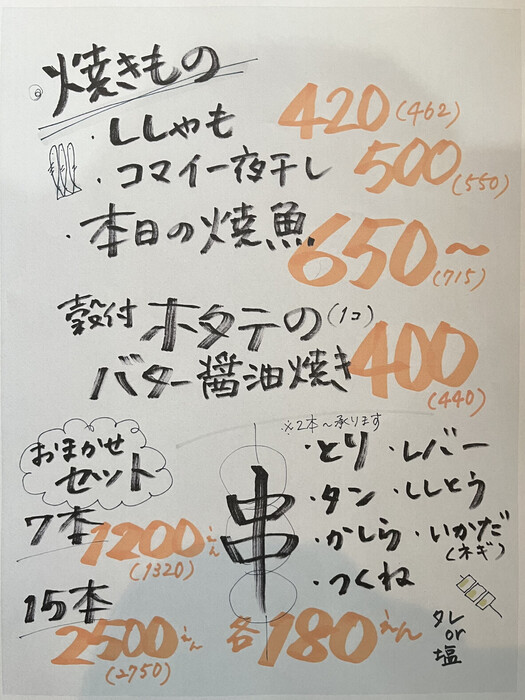 焼きもの
・ししゃも 420(462)
・コマイ一夜干し 500(550)
・本日の焼魚 650~(715)
殻付ホタテの(1コ)
バター醤油焼き 400(440)
おまかせ
セット
7本 1200えん(1320)
15本 2500えん(2750)
串
※2本~承ります
・とり ・レバー
・タン ・ししとう
・かしら ・いかだ(ネギ)
・つくね
各180えん
タレ
or
塩